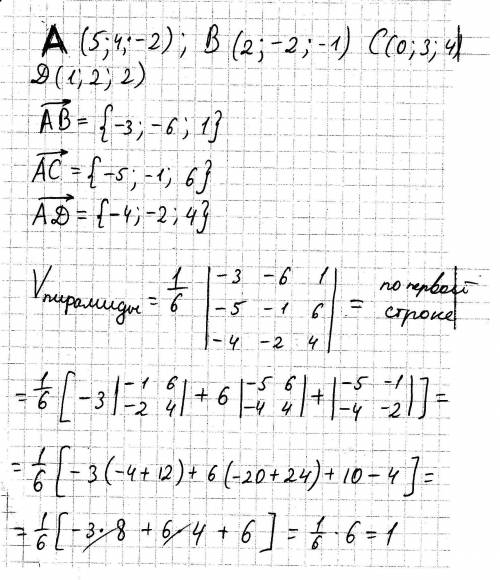 A (5; 4; -2); B (2; -2; -1) C(0; 3; 4)
D(1; 2; 2)
AB = {-3; -6; 1}
AC = {-5; -1; 6}
AD = {-4; -2; 4}
Vпирамиды = 1/6 |-3 -6 1| = по первой
|-5 -1 6| строке
|-4 -2 4|
= 1/6 [-3 |-1 6; -2 4| + 6 |-5 6; -4 4| + |-5 -1; -4 -2|] =
= 1/6 [-3(-4+12) + 6(-20+24) + 10 - 4] =
= 1/6 [-3·8 + 6·4 + 6] = 1/6 · 6 = 1